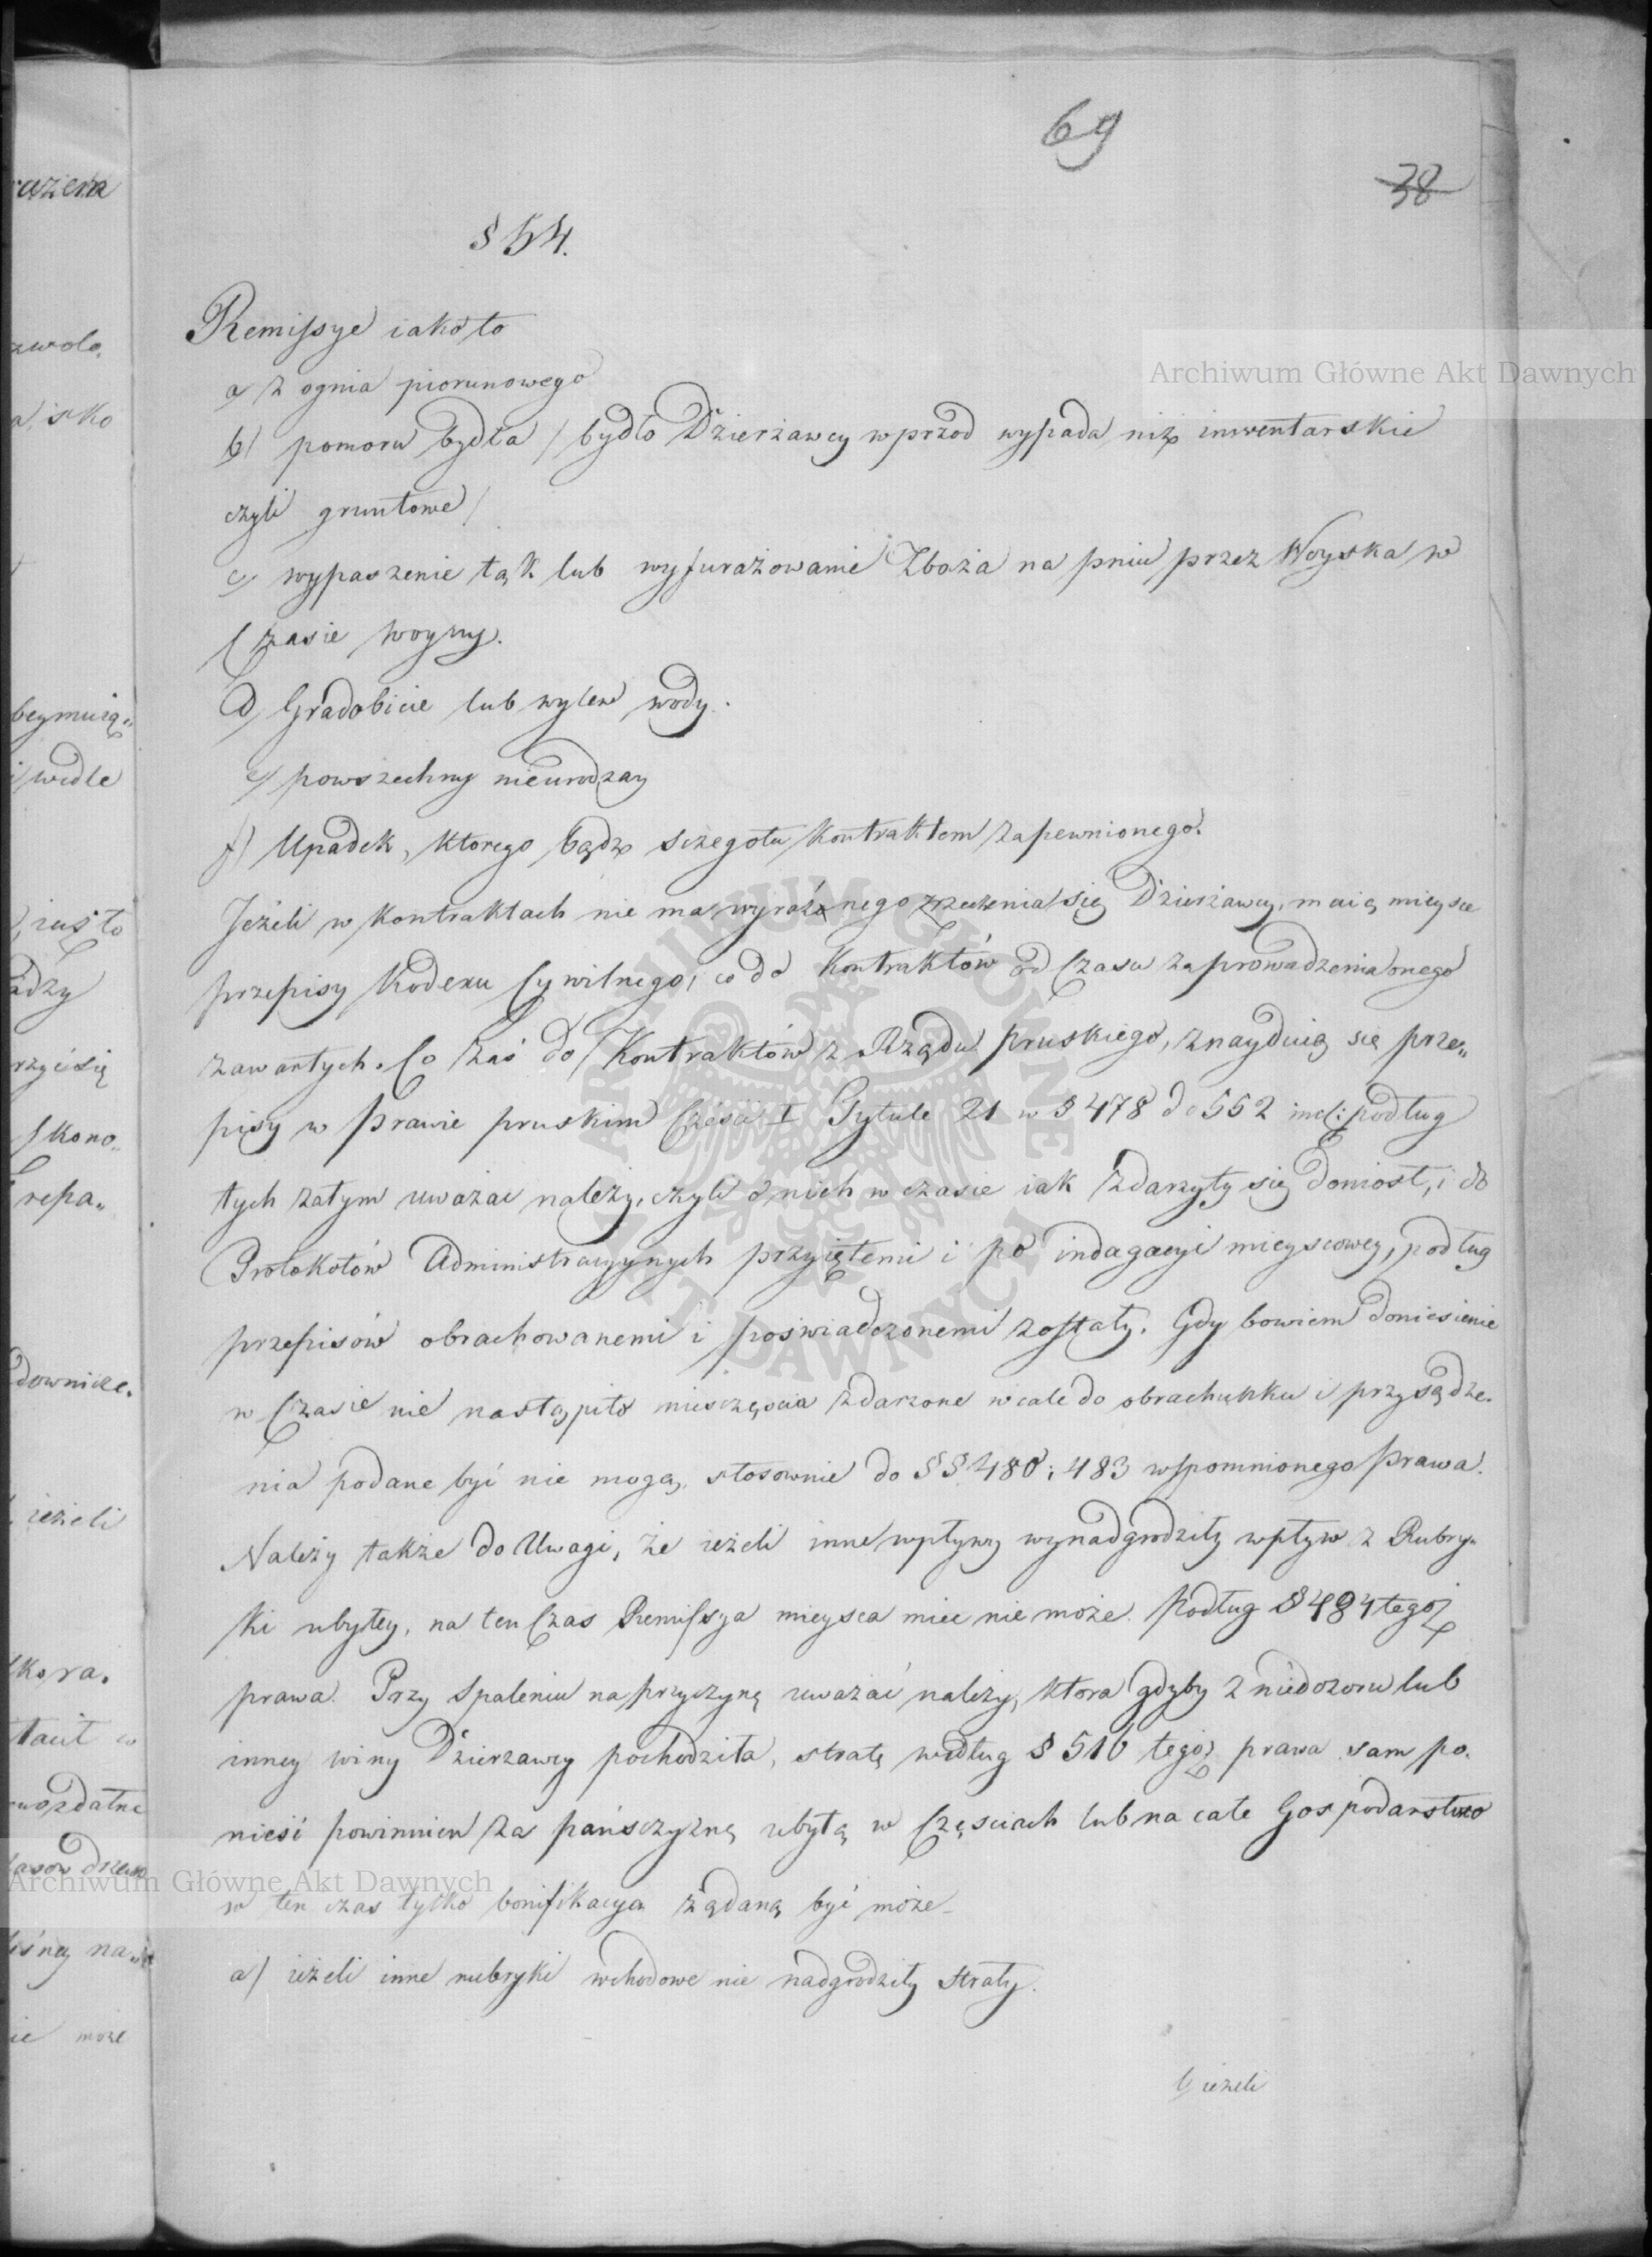 69
38
§ 54.
Remissye iako to
a) z ognia piorunowego
b) pomoru bydła / bydło Dzierżawcy wprzod wypada niż inwentarskie
czyli gruntowe /
c) wypaszenie łąk lub wyfurażowanie Zboża na pniu przez Woyska w
Czasie woyny.
d) Gradobicie lub wylew wody.
e) powszechny nieurodzay
f) Upadek, ktorego bądz sczegołu kontraktem zapewnionego.
Jeżeli w kontraktach nie ma wyraźnego zrzeczenia się Dzierżawcy, maią mieysce
przepisy Kodexu Cywilnego, co do Kontraktów od Czasu zaprowadzenia onego
zawartych. Co zaś do Kontraktów z Rządu pruskiego, znayduią się prze„
pisy w Prawie pruskim Części I Tytule 21 w § 478 do 552 incl: podług
tych zatym uważac należy, czyli o nich w czasie iak zdarzyły się doniosł, i do
Protokołów Administracyynych przyiętemi i po indagacyi mieyscowey, podług
przepisów obrachowanemi i poświadczonemi zostały. Gdy bowiem doniesienie
w Czasie nie nastąpiło niesczęscia zdarzone wcale do obrachunku i przysądze„
nia podane być nie mogą, stosownie do §§ 480 i 483 wspomnionego Prawa.
Należy także do Uwagi, że ieżeli inne wpływy wynadgrodziły wpływ z Rubry„
ki ubyłey, na ten Czas Remissya mieysca miec nie może podług § 484 tegoż
prawa. Przy Spaleniu na przyczynę uważać należy, ktora gdyby z niedozoru lub
inney winy Dzierzawcy pochodziła, stratę według § 516 tegoż prawa sam po„
nieść powinnien za pańsczyznę ubyłą w Częsciach lub na całe Gospodarstwo
w ten czas tylko bonifikacya żądaną być może
a) ieżeli inne rubryki wchodowe nie nadgrodziły Straty.
b) ieżeli
Archiwum Główne Akt Dawnych
Archiwum Główne Akt Dawnych
ARCHIWUM GŁÓWNE AKT DAWNYCH